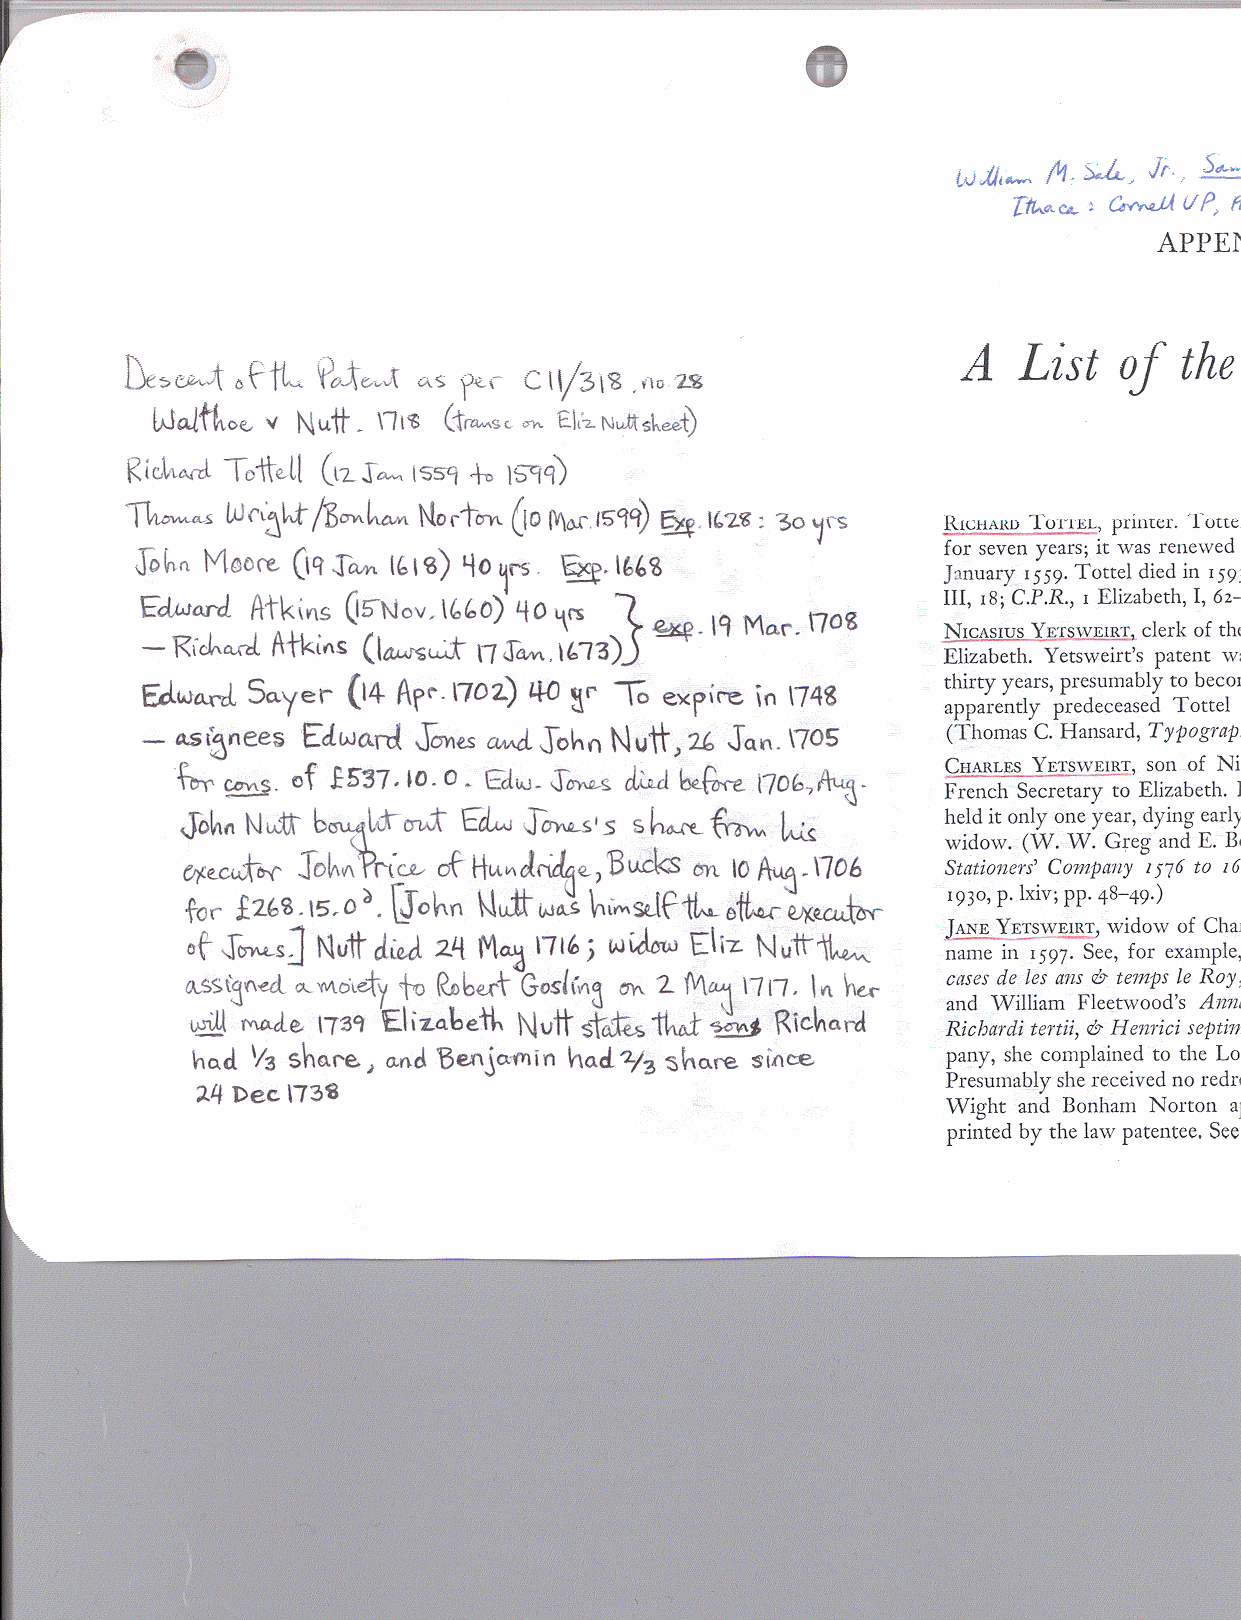 Descent of the Patent as per C11/318, no 28
Walthoe v Nutt. 1718 (transc on Eliz Nutt sheet)
Richard Tottell (12 Jan 1559 to 1599)
Thomas Wright/Bonhan Norton (10 Mar. 1599) Exp. 1628: 30 yrs
John Moore (19 Jan 1618) 40 yrs. Exp. 1668
Edward Atkins (15 Nov. 1660) 40 yrs
— Richard Atkins (lawsuit 17 Jan. 1673)
} exp. 19 Mar. 1708
Edward Sayer (14 Apr. 1702) 40 yr To expire in 1748
— asignees Edward Jones and John Nutt, 26 Jan. 1705
for cons. of £537.10.0. Edw. Jones died before 1706, Aug.
John Nutt bought out Edw Jones's share from his
executor John Price of Hundridge, Bucks on 10 Aug. 1706
for £268.15.0ᵈ. [John Nutt was himself the other executor
of Jones.] Nutt died 24 May 1716; widow Eliz Nutt then
assigned a moiety to Robert Gosling on 2 May 1717. In her
will made 1739 Elizabeth Nutt states that sons Richard
had 1/3 share, and Benjamin had 2/3 share since
24 Dec 1738
William M. Sale, Jr., Sam
Ithaca: Cornell UP,
APPEN
A List of the
RICHARD TOTTEL, printer. Totte
for seven years; it was renewed
January 1559. Tottel died in 159
III, 18; C.P.R., 1 Elizabeth, I, 62–
NICASIUS YETSWEIRT, clerk of the
Elizabeth. Yetsweirt's patent wa
thirty years, presumably to becom
apparently predeceased Tottel
(Thomas C. Hansard, Typograp
CHARLES YETSWEIRT, son of Ni
French Secretary to Elizabeth.
held it only one year, dying early
widow. (W. W. Greg and E. Bo
Stationers' Company 1576 to 16
1930, p. lxiv; pp. 48–49.)
JANE YETSWEIRT, widow of Cha
name in 1597. See, for example,
cases de les ans & temps le Roy,
and William Fleetwood's Anna
Richardi tertii, & Henrici septim
pany, she complained to the Lo
Presumably she received no redre
Wight and Bonham Norton a
printed by the law patentee. See